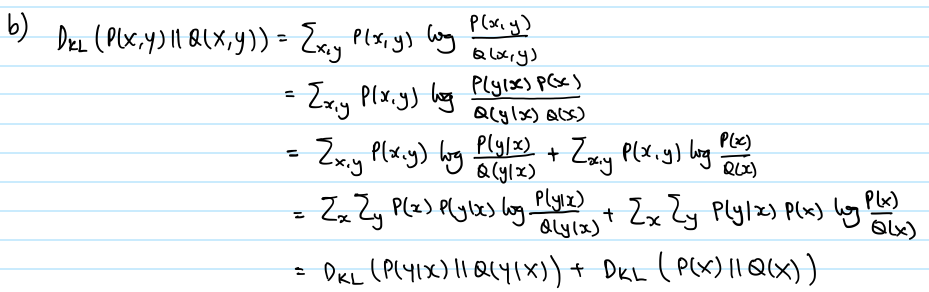 b) D_KL (P(x,y) || Q(x,y)) = Σ_x,y P(x,y) log P(x,y)/Q(x,y)
= Σ_x,y P(x,y) log P(y|x) P(x)/Q(y|x) Q(x)
= Σ_x,y P(x,y) log P(y|x)/Q(y|x) + Σ_x,y P(x,y) log P(x)/Q(x)
= Σ_x Σ_y P(x) P(y|x) log P(y|x)/Q(y|x) + Σ_x Σ_y P(y|x) P(x) log P(x)/Q(x)
= D_KL (P(Y|X) || Q(Y|X)) + D_KL (P(X) || Q(X))